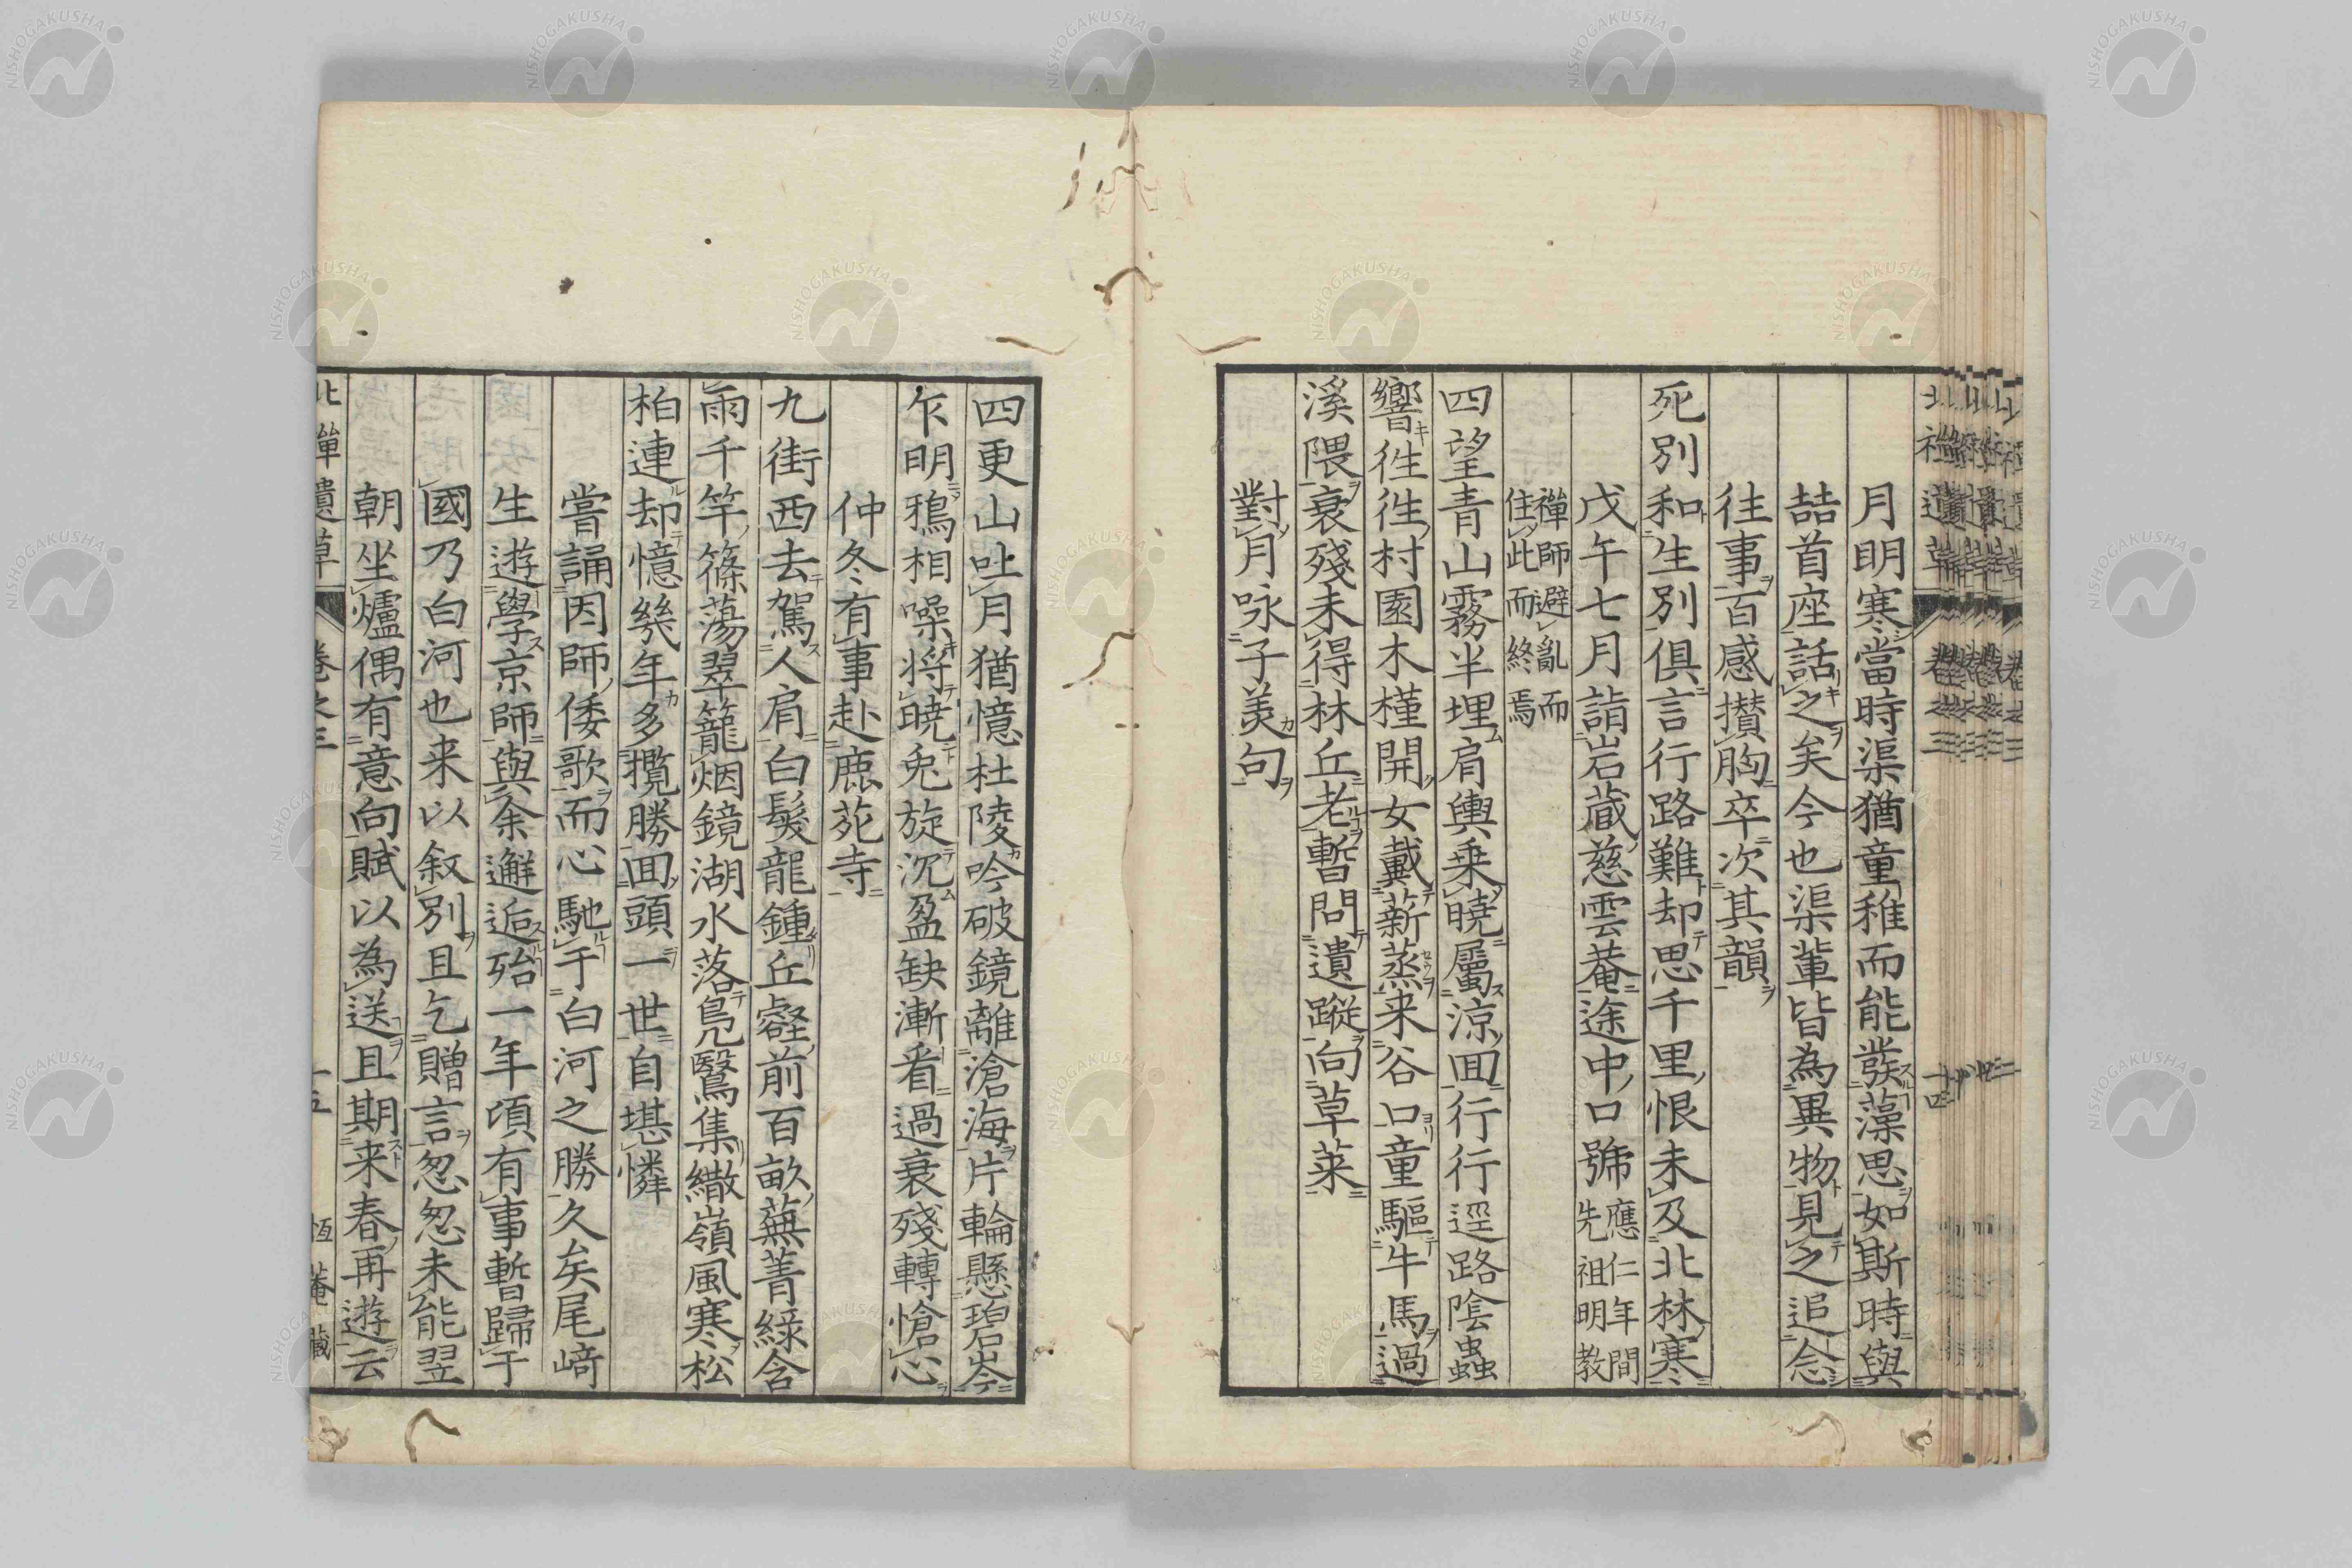 月明寒當時渠猶童稚而能發藻思如斯時與
喆首座話之矣今也渠輩皆為異物見之追念
往事百感攅胸卒次其韻
死別和生別俱言行路難却思千里恨未及北林寒
戊午七月詣岩蔵慈雲菴途中口號應仁年間先祖明教
禪師避亂而住此而終焉
四望青山霧半埋肩輿乗曉屬涼回行行逕路陰蟲
響徃徃村園木槿開女戴薪蒸来谷口童驅牛馬過
溪隈衰殘未得林丘老暫問遺蹤向草萊
對月咏子美句
四更山吐月猶憶杜陵吟破鏡離滄海片輪懸碧岑
乍明鴉相噪将曉兎旋沉盈缺漸看過衰殘轉愴心
仲冬有事赴鹿苑寺
九街西去駕人肩白髮龍鍾丘壑前百畝蕪菁綠含
雨千竿篠蕩翠籠烟鏡湖水落鳧鷖集繖嶺風寒松
柏連却憶幾年多攬勝回頭一世自堪憐
嘗誦因師倭歌而心馳于白河之勝久矣尾﨑
生遊學京師與余邂逅殆一年頃有事暫歸于
國乃白河也来以叙別且乞贈言怱怱未能翌
朝坐爐偶有意向賦以為送且期来春再遊云
北禪遺草 卷之三 十五 恆菴藏
NISHOGAKUSHA